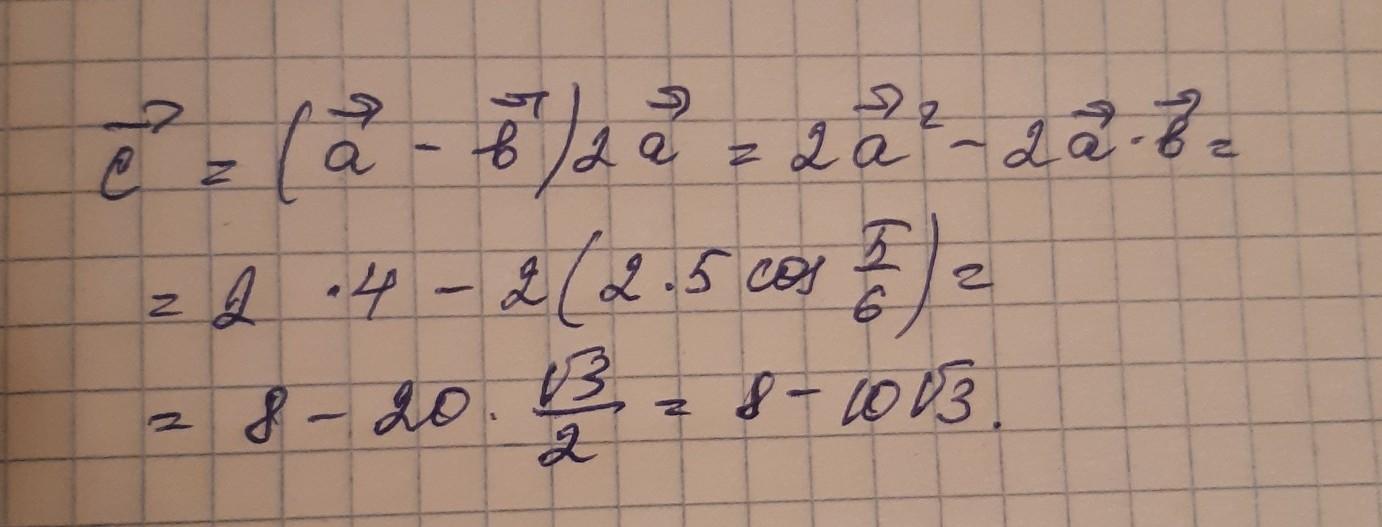 c⃗ = (a⃗ - b⃗)2a⃗ = 2a⃗² - 2a⃗·b⃗ =
= 2 · 4 - 2(2·5 cos π/6) =
= 8 - 20 · √3/2 = 8 - 10√3.